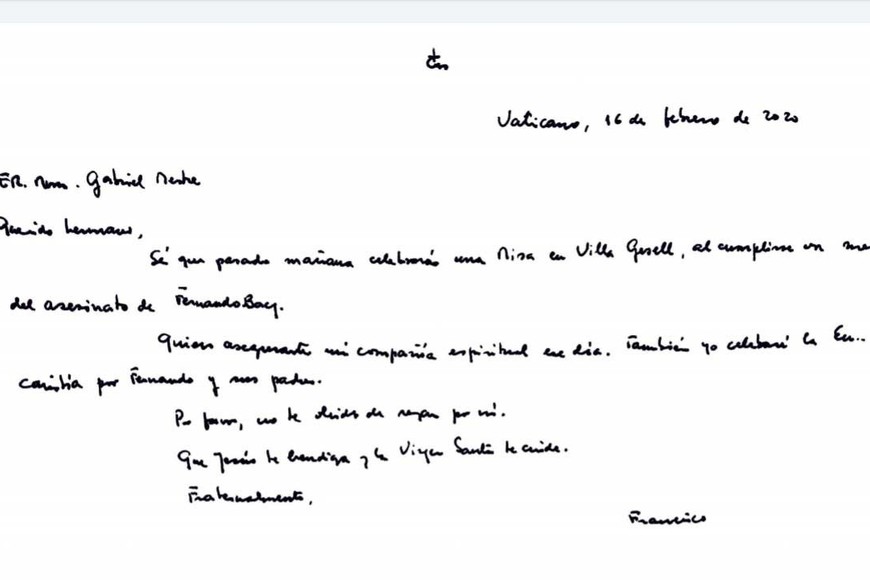 Vaticano, 16 de febrero de 2020
ER. Mons. Gabriel Mestre
Querido hermano,
Sé que pasado mañana celebrarás una Misa en Villa Gesell, al cumplirse un me
del asesinato de Fernando Baez.
Quiero asegurarte mi compañía espiritual ese día. También yo celebraré la Eu..
caristía por Fernando y sus padres.
Por favor, no te olvides de rezar por mí.
Que Jesús te bendiga y la Virgen Santa te cuide.
Fraternalmente,
Francisco